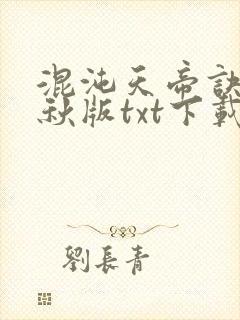 混沌天帝訣
秋版txt下載
劉長青